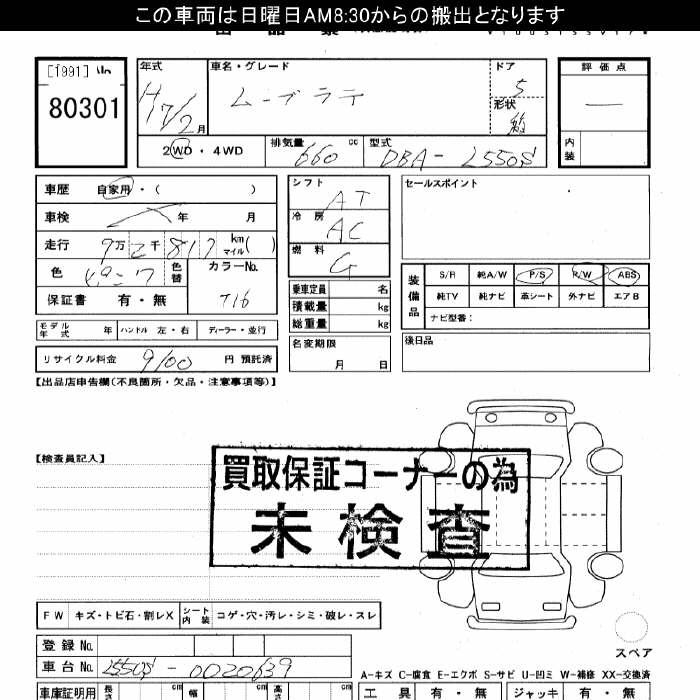 この車両は日曜日AM8:30からの搬出となります
80301
年式 車名・グレード ドア 評価点
H17/2月 ムーブラテ 5
形状 箱
2WD・4WD 排気量 660 cc 型式 DBA-L550S 内装
車歴 自家用・( ) シフト AT セールスポイント
車検 年 月 冷房 AC
走行 9万2千817 km マイル( ) 燃料 G
色 ピンク 色替 カラーNo. T16
保証書 有・無
乗車定員 名
積載量 kg
総重量 kg
装備品 S/R 純A/W P/S P/W ABS
純TV 純ナビ 革シート 外ナビ エアB
ナビ型番:
モデル年式 年 ハンドル 左・右 ディーラー・並行
名変期限 月 日
後日品
リサイクル料金 9100 円 預託済
【出品店申告欄(不良箇所・欠品・注意事項等)】
【検査員記入】
買取保証コーナーの為
未検査
FW キズ・トビ石・割レX シート内装 コゲ・穴・汚レ・シミ・破レ・スレ
スペア
登録No.
車台No. L550S-0020639
A-キズ C-腐食 E-エクボ S-サビ U-凹ミ W-補修 XX-交換済
車庫証明用 長さ cm 幅 cm 高さ cm 工具 有・無 ジャッキ 有・無